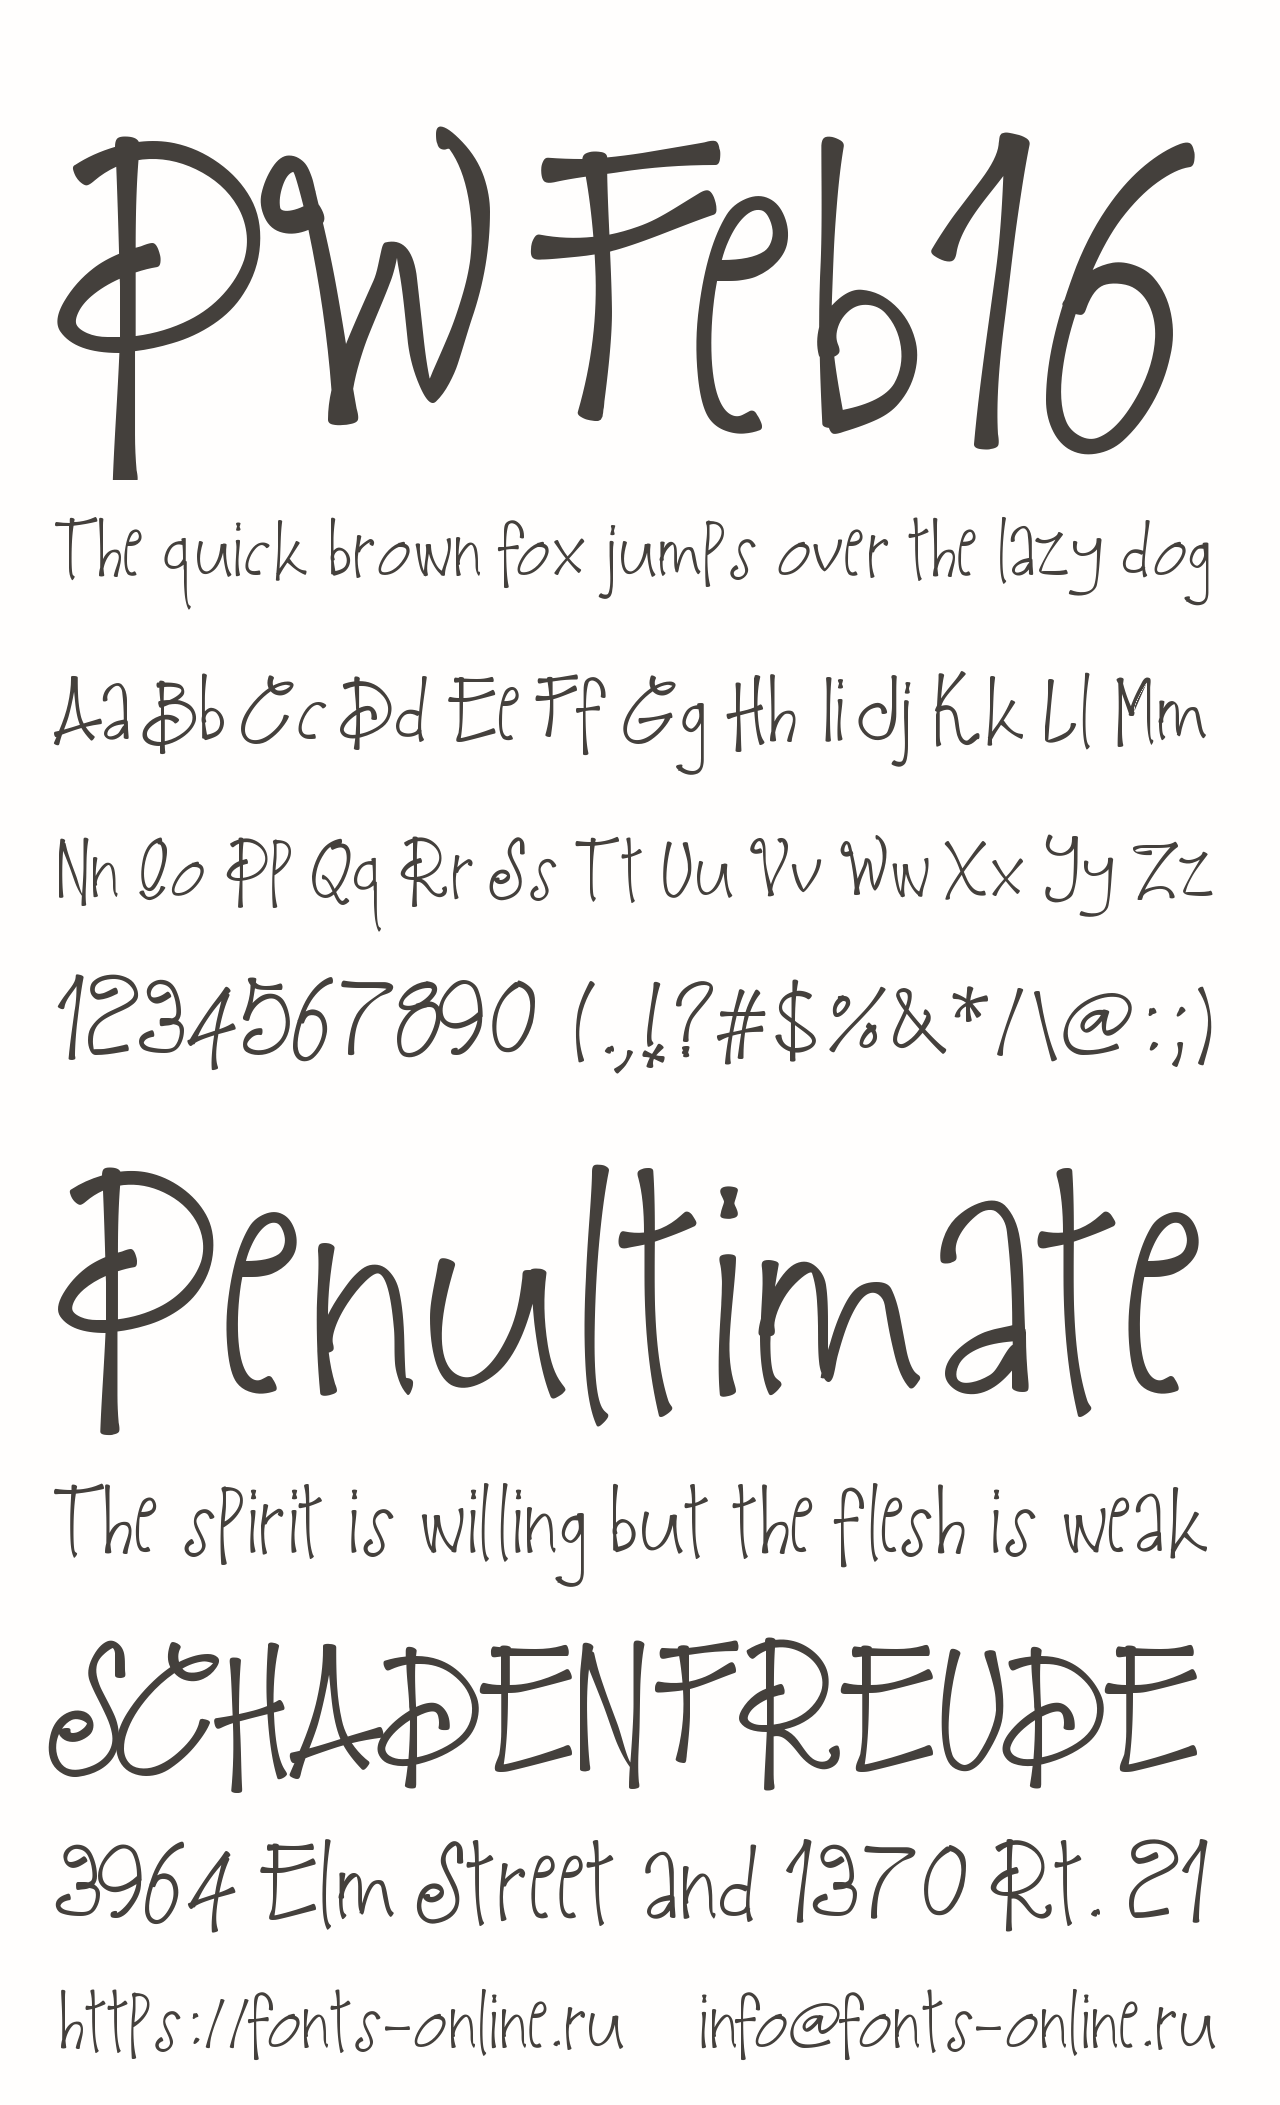 PWFeb16
The quick brown fox jumps over the lazy dog
Aa Bb Cc Dd Ee Ff Gg Hh Ii Jj Kk Ll Mm
Nn Oo Pp Qq Rr Ss Tt Uu Vv Ww Xx Yy Zz
1234567890 (.,!?#$%&*/\@:;)
Penultimate
The spirit is willing but the flesh is weak
SCHADENFREUDE
3964 Elm Street and 1370 Rt. 21
https://fonts-online.ru info@fonts-online.ru